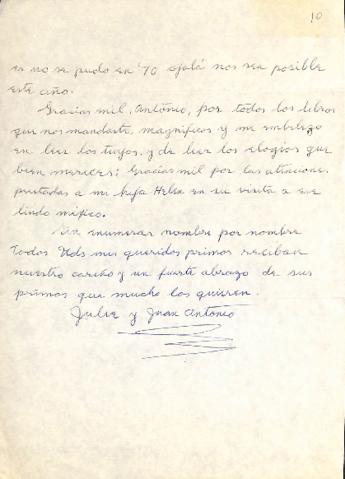 10
ya no se pudo en '70 ojalá nos sea posible
este año.
Gracias mil, Antonio, por todos los libros
que nos mandaste, magníficos y me embebzo
en leer los tuyos, y de leer los elogios que
bien mereces; Gracias mil por las atenciones
prestadas a mi hija Helen en su visita a ese
lindo México.
Sin enumerar nombre por nombre
Todos Uds mis queridos primos reciban
nuestro cariño y un fuerte abrazo de sus
primos que mucho los quieren.
Julie y Juan Antonio